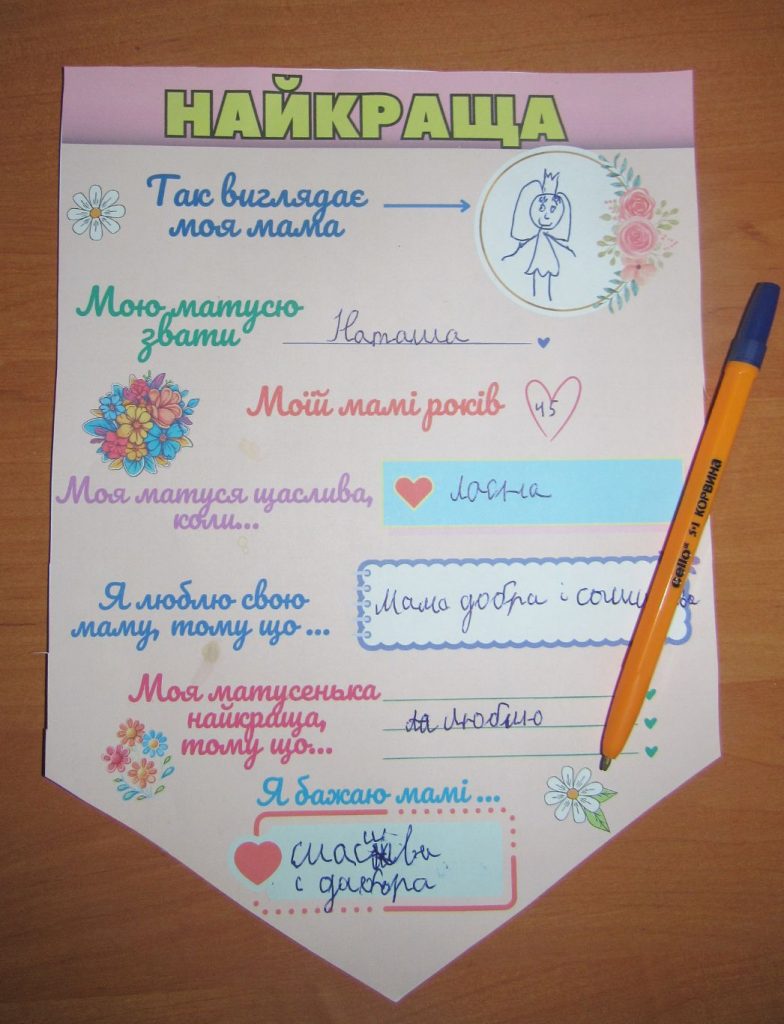 НАЙКРАЩА
Так виглядає
моя мама
Мою матусю
звати
Наташа
Моїй мамі років
45
Моя матуся щаслива,
коли...
ласна
Я люблю свою
маму, тому що ...
Мама добра і
Моя матусенька
найкраща,
тому що...
люблю
Я бажаю мамі ...
cello® 5+1 КОРВИНА